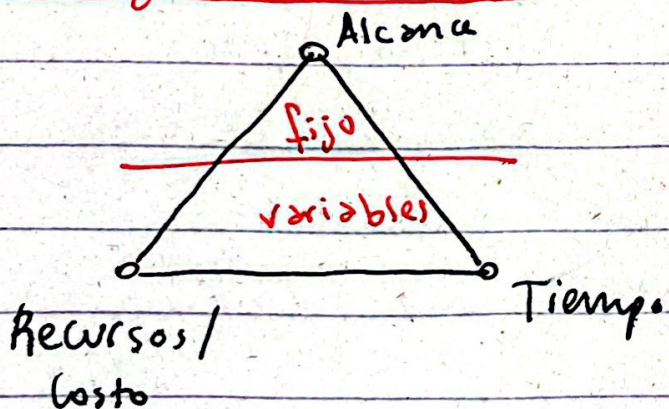 Alcance
fijo
variables
Recursos/
Costo
Tiempo